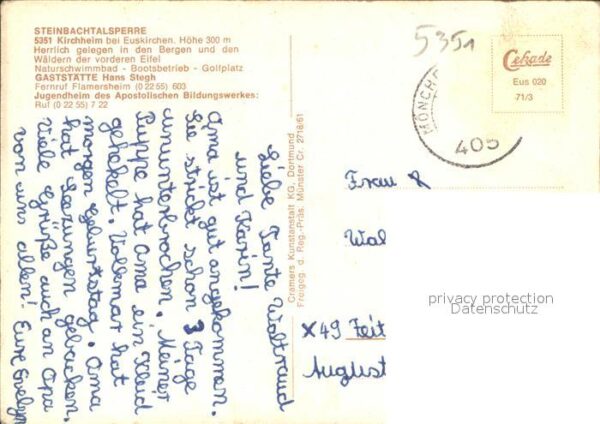 STEINBACHTALSPERRE
5351 Kirchheim bei Euskirchen. Höhe 300 m
Herrlich gelegen in den Bergen und den
Wäldern der vorderen Eifel
Naturschwimmbad - Bootsbetrieb - Golfplatz
GASTSTÄTTE Hans Stegh
Fernruf Flamersheim (0 22 55) 603
Jugendheim des Apostolischen Bildungswerkes:
Ruf (0 22 55) 7 22
Liebe Tante Waltraud
und Karin!
Oma ist gut angekommen.
Sie strickt schon 3 Tage
ununterbrochen. Meiner
Puppe hat Oma ein Kleid
gehäkelt. Volkmar hat
morgen Geburtstag. Oma
hat Seezungen gebacken.
Viele Grüße auch an Opa
von uns allen! Eure Evelyn
Cramers Kunstanstalt KG, Dortmund
Freigeg. d. Reg.-Präs. Münster Cr. 2718/61
5351
Cekade
Eus 020
71/3
MÖNCHE
405
Frau
Wal
X49 Feit
August
privacy protection
Datenschutz